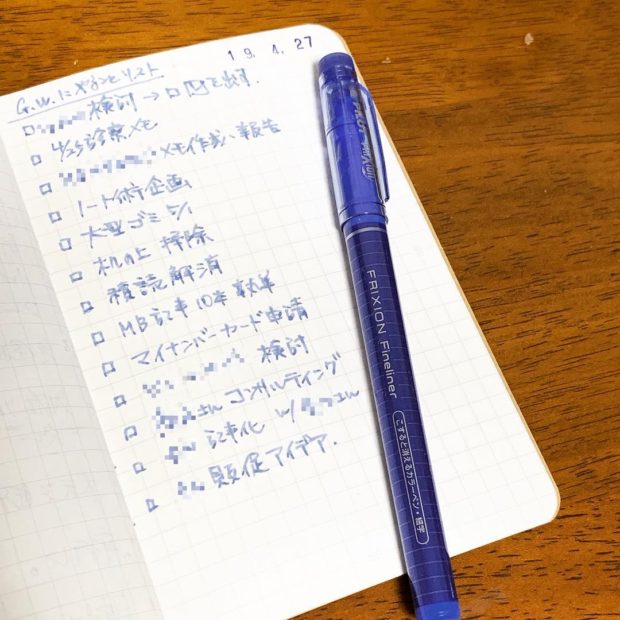 19.4.27
G.W.にやることリスト
検討→□図を出す.
4/25診察メモ
メモ作成、報告
ノート術企画
大型ゴミ
机の上掃除
積読解消
MB記事10本執筆
マイナンバーカード申請
検討
コンサルティング
記事化 w/
販促アイデア.
PILOT
FRIXION Fineliner
こすると消えるカラーペン・細字